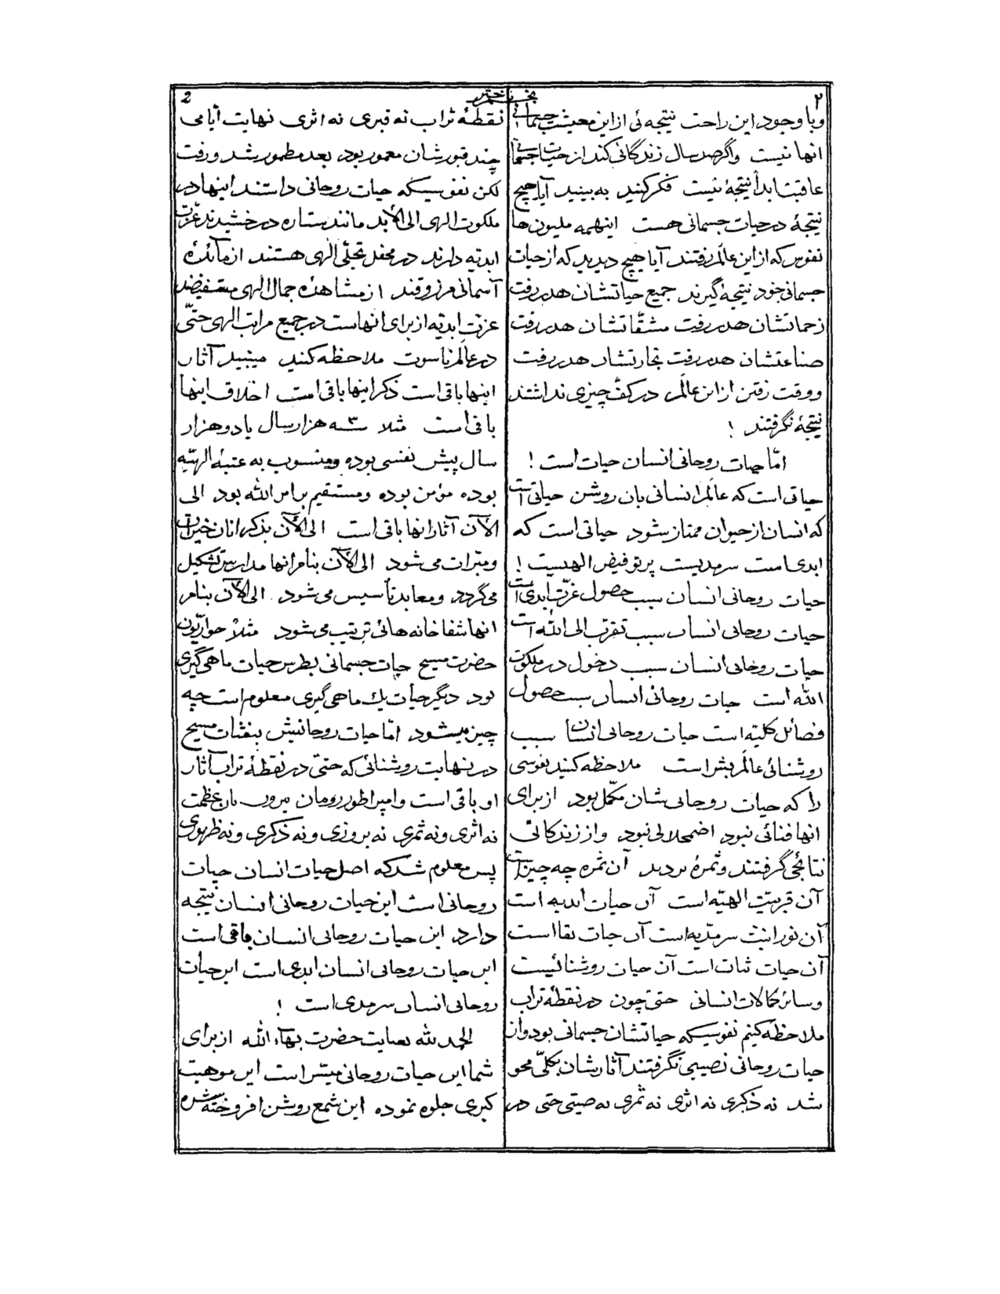 ۲
نجم باختر
2
و با وجود این راحت نتیجه ئی از این معیشت جسمانی
انها نیست واگر صد سال زندگانی کند از حیات جسمانی
عاقبت ابداً نتیجهٔ نیست فکر کنید به بینید آیا هیچ
نتیجهٔ در حیات جسمانی هست اینهمه ملیون ها
نفوس که از این عالم رفتند آیا هیچ دیدید که از حیات
جسمانی خود نتیجهٔ گیرند جمیع حیاتشان هدر رفت
زحماتشان هدر رفت مشقّاتشان هدر رفت
صناعتشان هدر رفت تجارتشان هدر رفت
و وقت رفتن از این عالم در کف چیزی نداشتند
نتیجهٔ نگرفتند !
امّا حیات روحانی انسان حیات است !
حیاتی است که عالم انسانی بان روشن حیاتی است
که انسان از حیوان ممتاز شود حیاتی است که
ابدی است سرمدیست پرتو فیض الهیست !
حیات روحانی انسان سبب حصول عزّت ابدی است
حیات روحانی انسان سبب تقرّب الی الله است
حیات روحانی انسان سبب دخول در ملکوت
الله است حیات روحانی انسان سبب حصول
فضائل کلیّه است حیات روحانی انسان سبب
روشنائی عالم بشر است ملاحظه کنید نفوسی
را که حیات روحانی شان مکمّل بود از برای
انها فنائی نبود اضمحلالی نبود و از زندگانی
نتائجی گرفتند و ثمرهٔ بردند آن ثمره چه چیز است
آن قربیّت الهیّه است آن حیات ابدیه است
آن نورانیت سرمدیه است آن حیات بقا است
آن حیات ثبات است آن حیات روشنائیست
وسائر کمالات انسانی حتی چون در نقطهٔ تراب
ملاحظه کنم نفوسیکه حیاتشان جسمانی بود و از
حیات روحانی نصیبی نگرفتند آثارشان بکلّی محو
شد نه ذکری نه اثری نه ثمری نه صیتی حتی در
نقطهٔ تراب نه قبری نه اثری نهایت ایّامی
چند قبورشان معمور بود بعد مطمور شد و رفت
لکن نفوسیکه حیات روحانی داشتند اینها در
ملکوت الهی الی الأبد مانند ستاره درخشیدند عزّت
ابدیّه دارند در محفل تجلّی الهی هستند از مائدهٔ
آسمانی مرزوقند از مشاهدهٔ جمال الهی مستفیضند
عزت ابدیّه از برای انهاست در جمیع مراتب الهی حتّی
در عالم ناسوت ملاحظه کنید میبینید آثار
اینها باقی است ذکر اینها باقی است اخلاق اینها
باقی است مثلا سه هزار سال یا دو هزار
سال پیش نفسی بوده و منسوب به عتبهٔ الهیّه
بوده مؤمن بوده ومستقیم بر امر الله بود الی
الآن آثار انها باقی است الی الآن بذکر انان خیرات
ومبرات می شود الی الآن بنام انها مدارس تشکیل
می گردد ومعابد تأسیس می شود الی الآن بنام
انها شفاخانه هائی ترتیب می شود مثلاً حواریّون
حضرت مسیح حیات جسمانی بطرس حیات ماهی گیری
بود دیگر حیات یک ماهی گیری معلوم است چه
چیز میشود امّا حیات روحانیش بنفثات مسیح
در نهایت روشنائی که حتّی در نقطهٔ تراب آثار
او باقی است و امپراطور رومان نیرون بان عظمت
نه اثری ونه ثمری نه بروزی ونه ذکری ونه ظهوری
پس معلوم شد که اصل حیات انسان حیات
روحانی است این حیات روحانی انسان نتیجه
دارد این حیات روحانی انسان باقی است
این حیات روحانی انسان ابدی است این حیات
روحانی انسان سرمدی است !
الحمد لله بعنایت حضرت بهاء الله از برای
شما این حیات روحانی میسّر است این موهبت
کبری جلوه نموده این شمع روشن افروخته شده